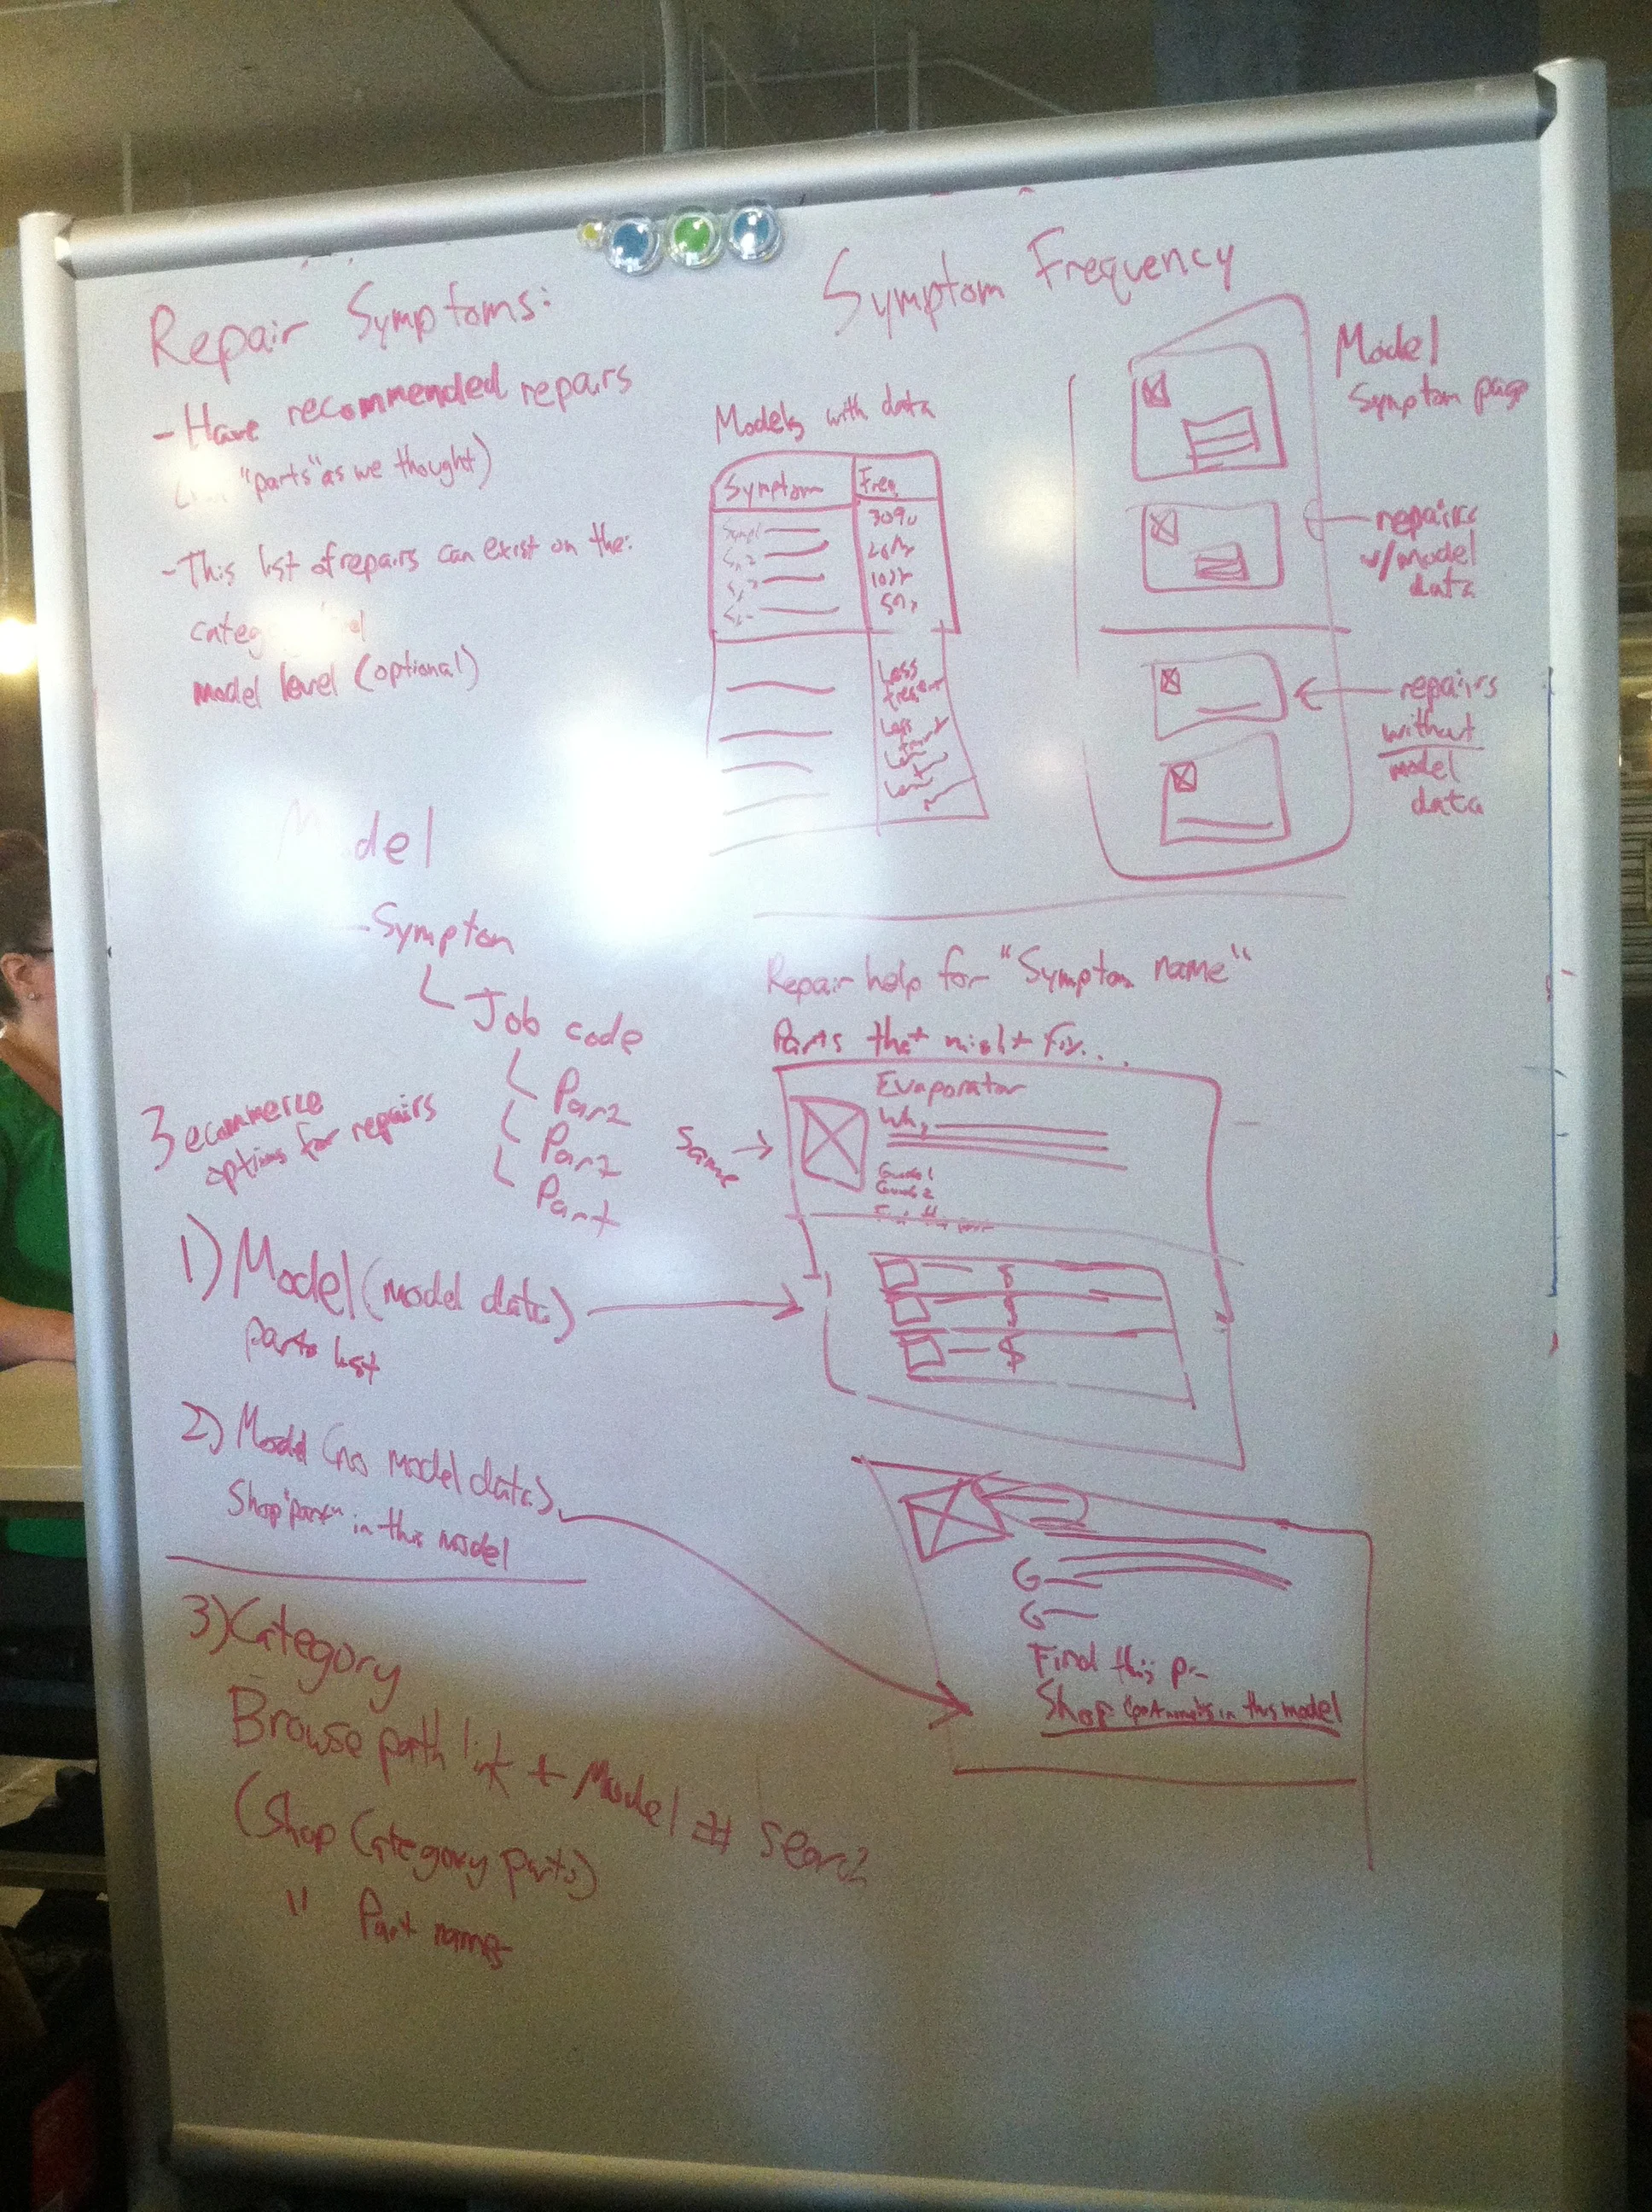 Repair Symptoms:
- Have recommended repairs
"parts" as we thought)
- This list of repairs can exist on the:
model level (optional)
Model
- Symptom
Job code
Part
Part
Part
3 ecommerce
options for repairs
1) Model (model data)
parts list
2) Model (no model data)
Shop "part" in this model
3) Category
Browse path link + Model # search
(Shop Category parts)
" Part names
Symptom Frequency
Models with data
Symptom Freq
30%
20%
10%
5%
Less
frequent
Less
Model
Symptom page
repairs
w/model
data
repairs
without
model
data
Repair help for "Symptom name"
Parts that might fix...
Same
Evaporator
Why
Guide 1
Guide 2
$
$
$
G
G
Find this p
Shop in this model